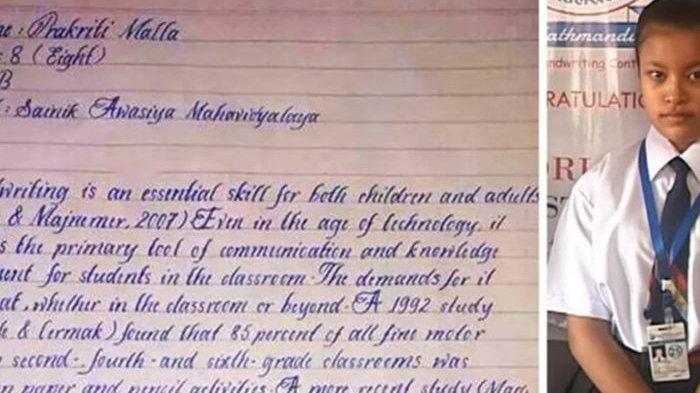 : Prakriti Malla
: 8 (Eight)
B
: Sainik Awasiya Mahavidyalaya
writing is an essential skill for both children and adults
& Majnemer, 2007) Even in the age of technology, it
the primary tool of communication and knowledge
for students in the classroom. The demands for it
, whether in the classroom or beyond. A 1992 study
& Cermak) found that 85 percent of all fine motor
second-, fourth-and sixth-grade classrooms was
paper and pencil activities. A more recent study (Mac
Kathmandu
andwriting Cont
RATULATIO
ORL
ST